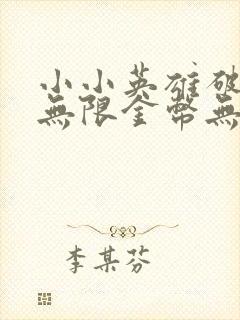 小小英雄破
無限金幣無
李某芬